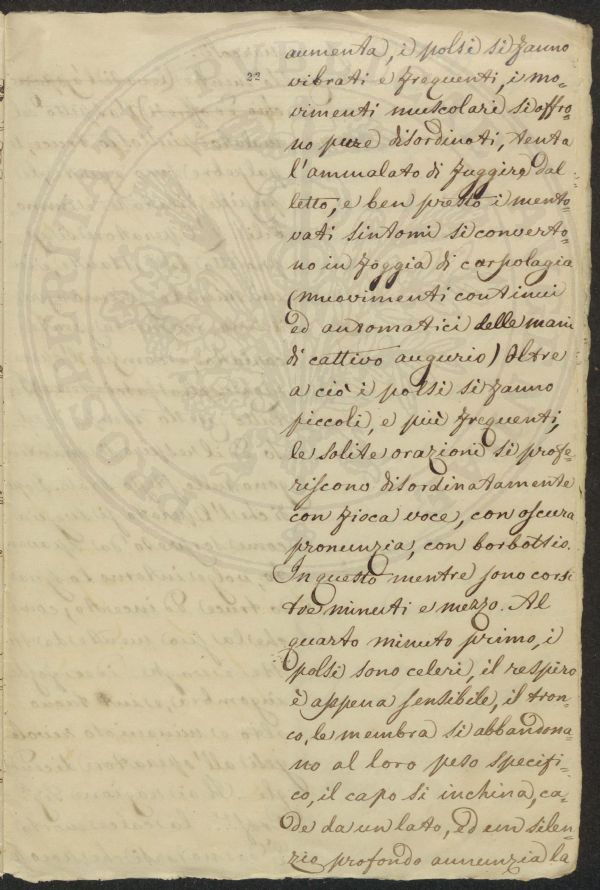 22
aumenta, i polsi si fanno
vibrati e frequenti, i mo-
vimenti muscolari si offro-
no pure disordinati, tenta
l'ammalato di fuggire dal
letto, e ben presto i mento-
vati sintomi si converto-
no in foggia di carpolagia
(muovimenti continui
ed automatici delle mani
di cattivo augurio) Oltre
a ciò i polsi si fanno
piccoli, e più frequenti,
le solite orazioni si profe-
riscono disordinatamente
con fioca voce, con oscura
pronunzia, con borbottio.
In questo mentre sono corsi
tre minuti e mezzo. Al
quarto minuto primo, i
polsi sono celeri, il respiro
è appena sensibile, il tron-
co, le membra si abbandona-
no al loro peso specifi-
co, il capo si inchina, ca-
de da un lato, ed un silen-
zio profondo annunzia la